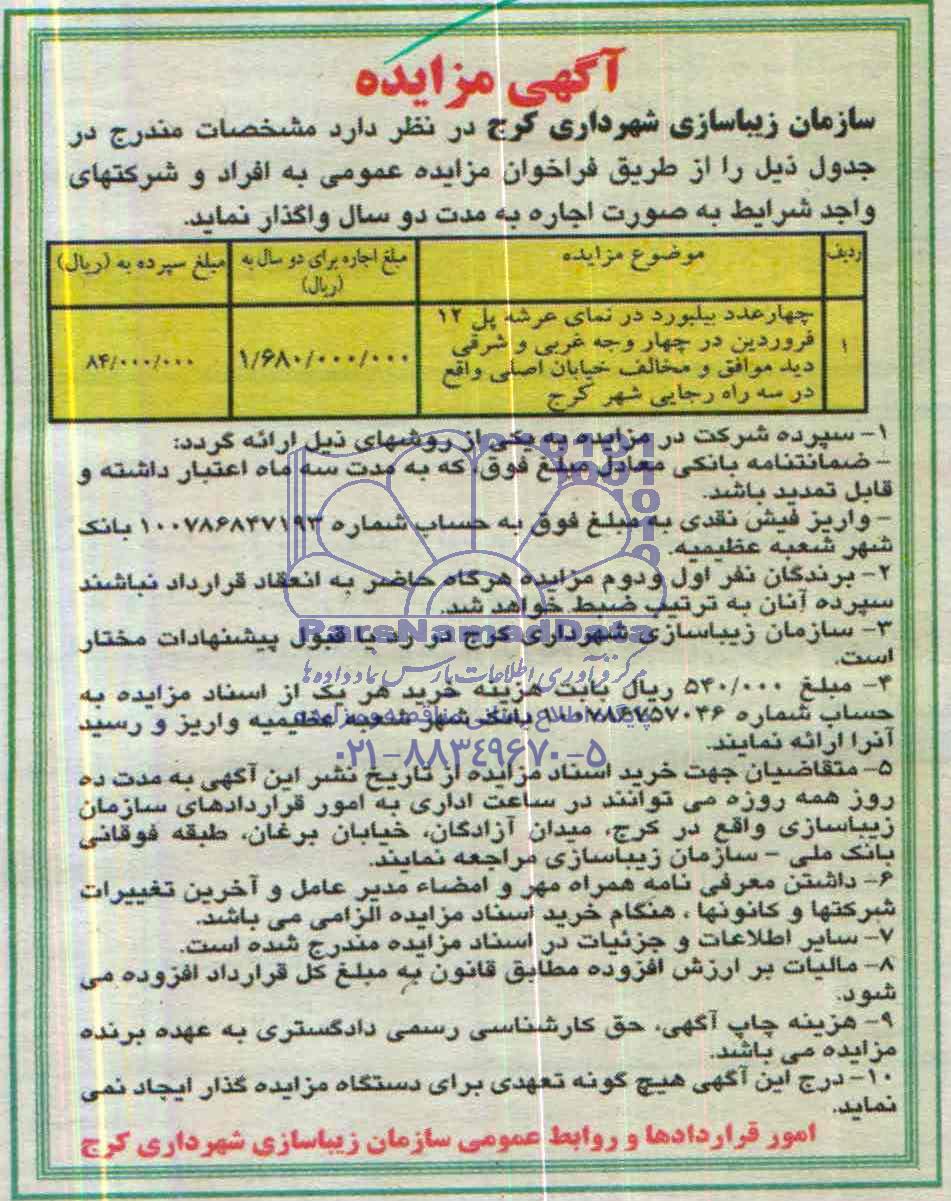 آگهی مزایده
سازمان زیباسازی شهرداری کرج در نظر دارد مشخصات مندرج در
جدول ذیل را از طریق فراخوان مزایده عمومی به افراد و شرکتهای
واجد شرایط به صورت اجاره به مدت دو سال واگذار نماید.
ردیف
موضوع مزایده
مبلغ اجاره برای دو سال به (ریال)
مبلغ سپرده به (ریال)
۱
چهارعدد بیلبورد در نمای عرشه پل ۱۲
فروردین در چهار وجه غربی و شرقی
دید موافق و مخالف خیابان اصلی واقع
در سه راه رجایی شهر کرج
۱/۶۸۰/۰۰۰/۰۰۰
۸۴/۰۰۰/۰۰۰
۱- سپرده شرکت در مزایده به یکی از روشهای ذیل ارائه گردد:
- ضمانتنامه بانکی معادل مبلغ فوق، که به مدت سه ماه اعتبار داشته و
قابل تمدید باشد.
- واریز فیش نقدی به مبلغ فوق به حساب شماره ۱۰۰۷۸۶۸۴۷۱۹۳ بانک
شهر شعبه عظیمیه.
۲- برندگان نفر اول ودوم مزایده هرگاه حاضر به انعقاد قرارداد نباشند
سپرده آنان به ترتیب ضبط خواهد شد.
۳- سازمان زیباسازی شهرداری کرج در رد یا قبول پیشنهادات مختار
است.
۴- مبلغ ۵۴۰/۰۰۰ ریال بابت هزینه خرید هر یک از اسناد مزایده به
حساب شماره بانک شهر شعبه عظیمیه واریز و رسید
آنرا ارائه نمایند.
۵- متقاضیان جهت خرید اسناد مزایده از تاریخ نشر این آگهی به مدت ده
روز همه روزه می توانند در ساعت اداری به امور قراردادهای سازمان
زیباسازی واقع در کرج، میدان آزادگان، خیابان برغان، طبقه فوقانی
بانک ملی - سازمان زیباسازی مراجعه نمایند.
۶- داشتن معرفی نامه همراه مهر و امضاء مدیر عامل و آخرین تغییرات
شرکتها و کانونها ، هنگام خرید اسناد مزایده الزامی می باشد.
۷- سایر اطلاعات و جزئیات در اسناد مزایده مندرج شده است.
۸- مالیات بر ارزش افزوده مطابق قانون به مبلغ کل قرارداد افزوده می
شود.
۹- هزینه چاپ آگهی، حق کارشناسی رسمی دادگستری به عهده برنده
مزایده می باشد.
۱۰- درج این آگهی هیچ گونه تعهدی برای دستگاه مزایده گذار ایجاد نمی
نماید.
امور قراردادها و روابط عمومی سازمان زیباسازی شهرداری کرج
ParsNamadData
مرکز فرآوری اطلاعات پارس نماد داده ها
۰۲۱-۸۸۳۴۹۶۷۰-۵